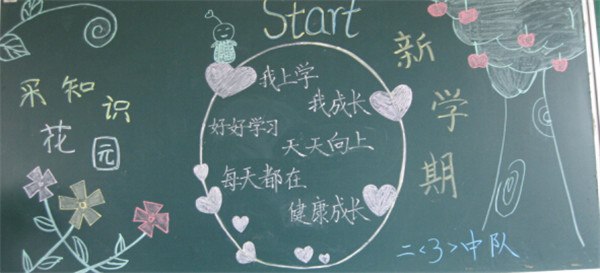 Start
新学期
采知识
花园
我上学
我成长
好好学习
天天向上
每天都在
健康成长
二<3>中队